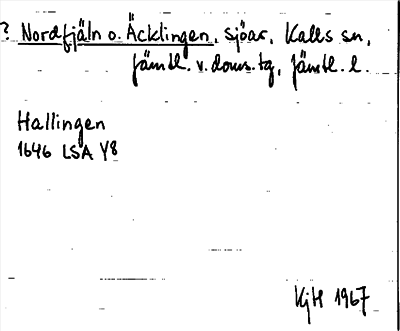 ? Nordfjäln o. Äcklingen, sjöar, Kalls sn,
Jämtl. v. doms. tg, Jämtl. l.
Hallingen
1646 LSA Y8
KjH 1967